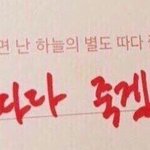 면 난 하늘의 별도 따다
따다 죽겠